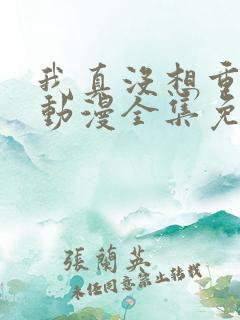 我真没想重
動漫全集免
張蘭英
未经同意禁止转载